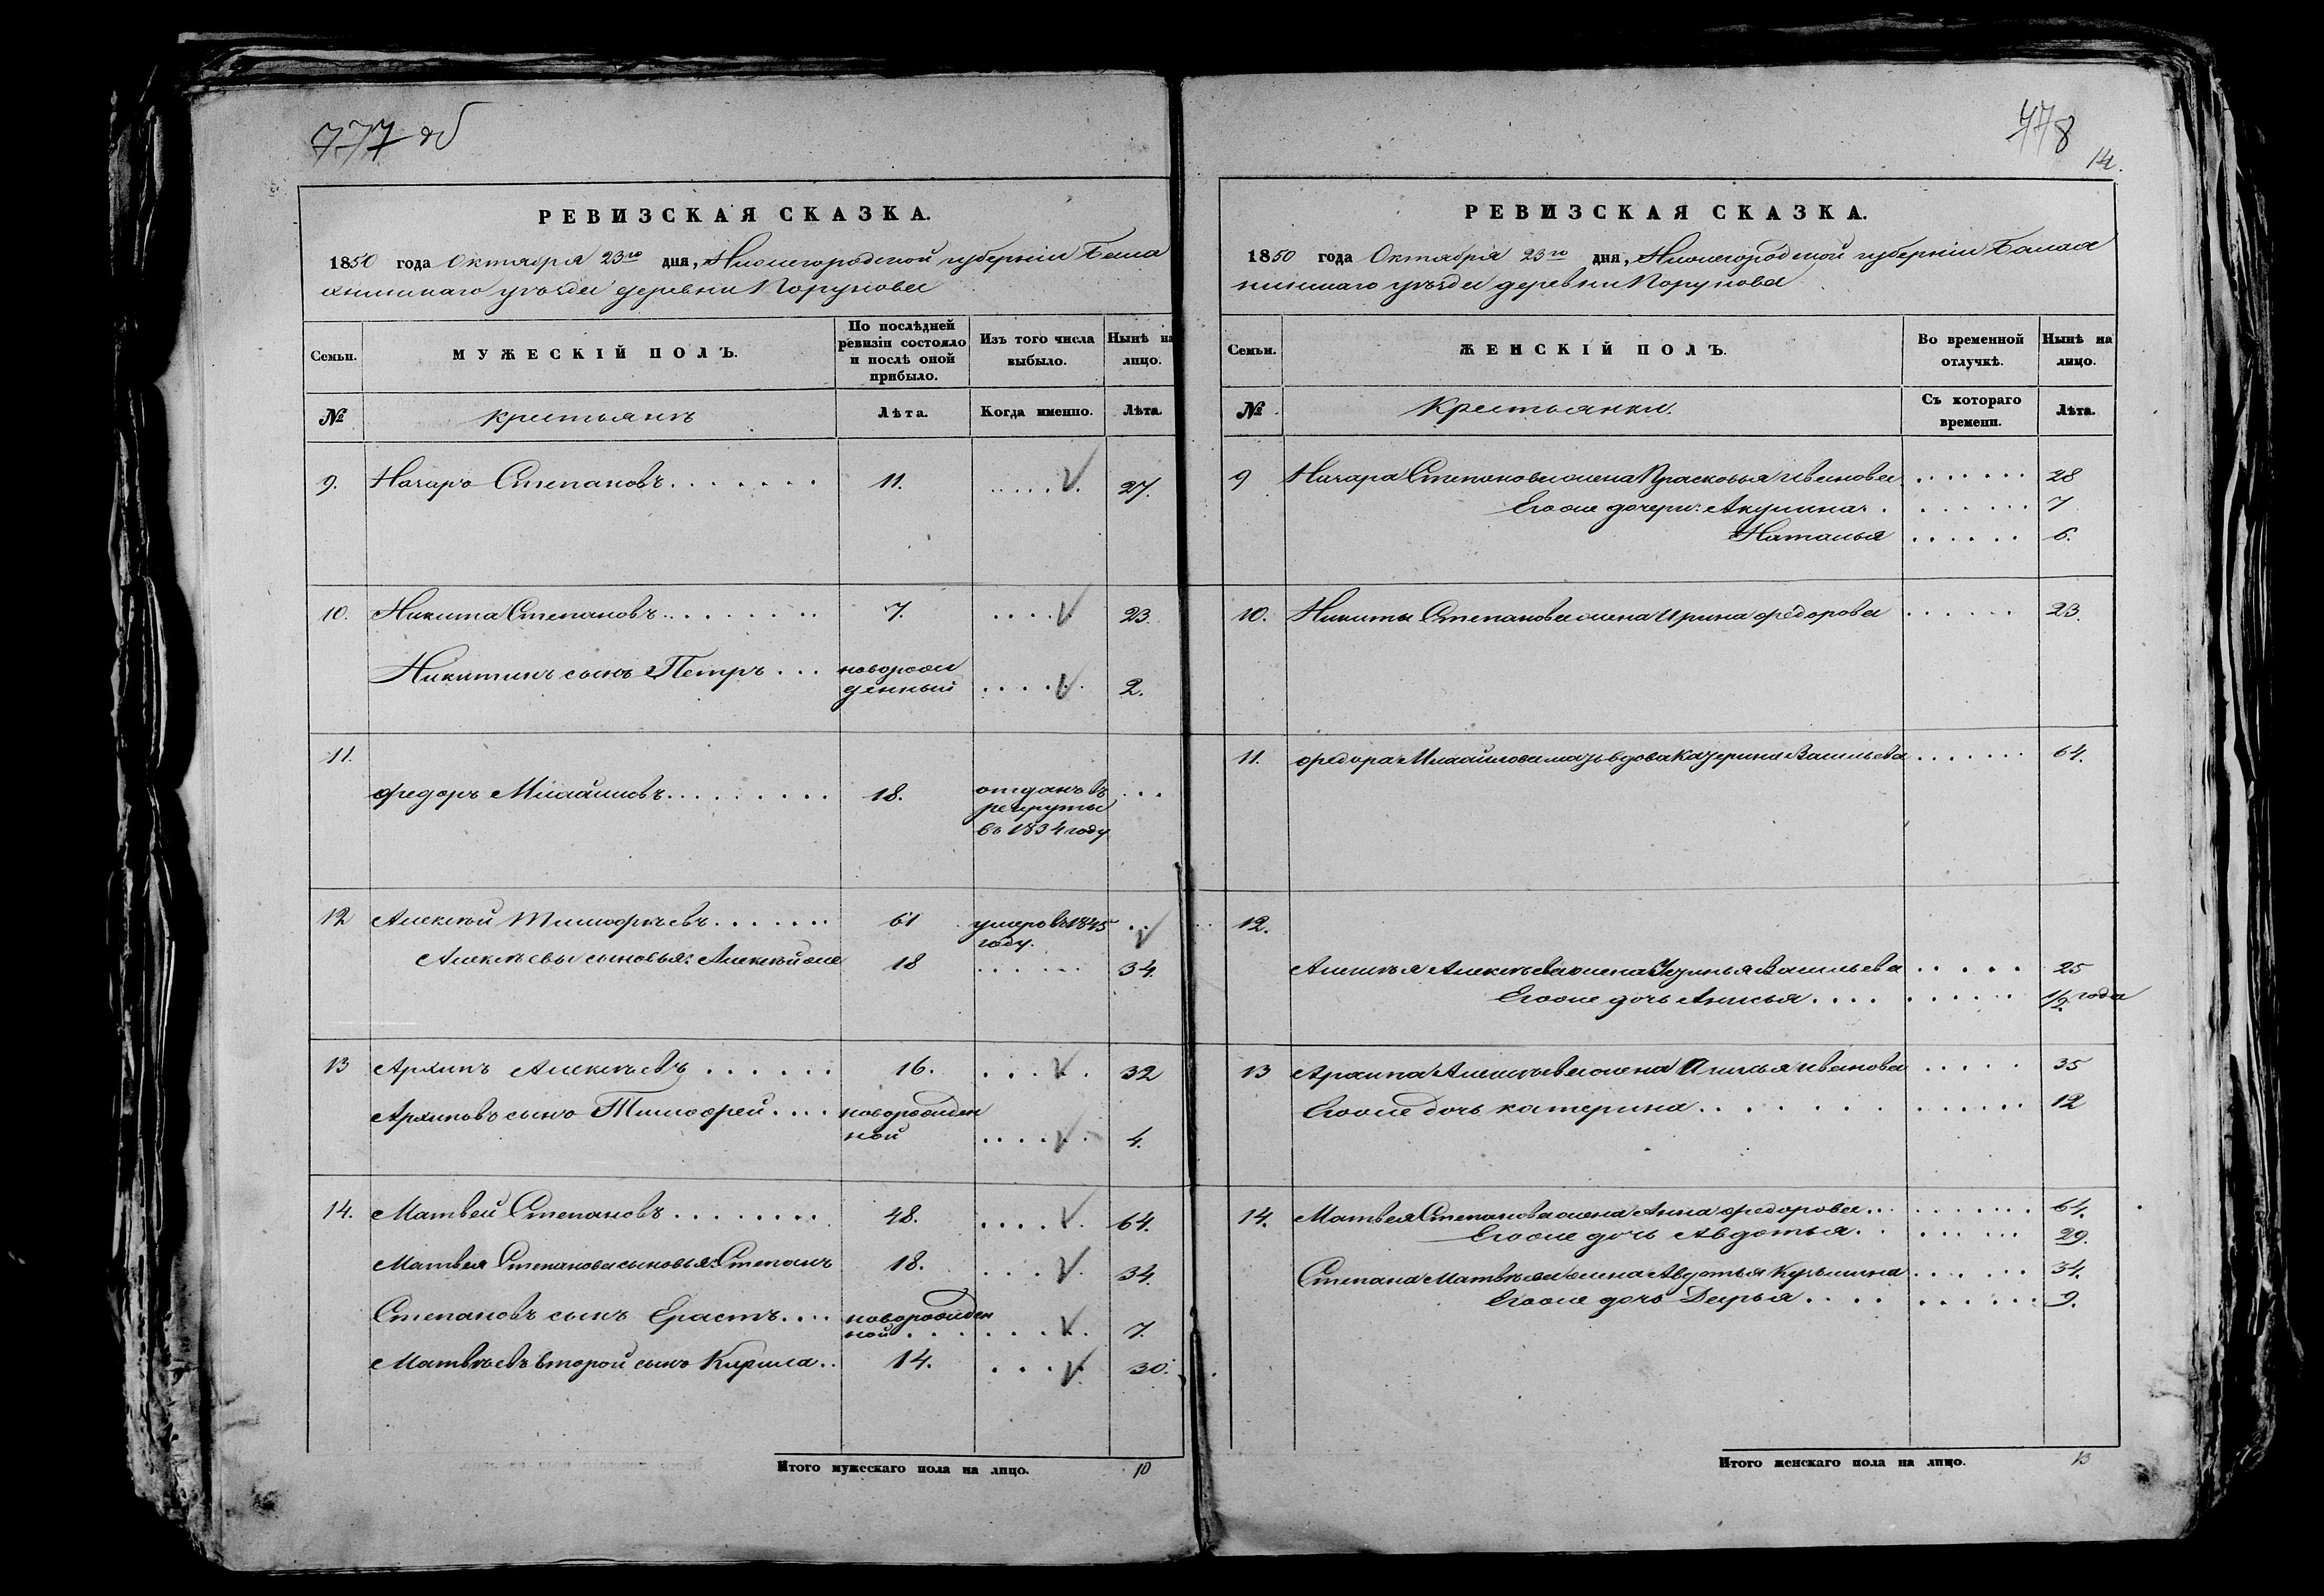 777 об
РЕВИЗСКАЯ СКАЗКА.
1850 года Октября 23го дня, Нижегородской губерніи Бала
хнинскаго уѣзда деревни Порунова
Семьи.
МУЖЕСКІЙ ПОЛЪ.
По послѣдней ревизіи состояло и послѣ оной прибыло.
Изъ того числа выбыло.
Нынѣ на лицо.
№
крестьянъ
Лѣта.
Когда именно.
Лѣта.
9. Назаръ Степановъ 11. 27.
10. Никита Степановъ 7. 23.
Никитинъ сынъ Петръ новорож
денный 2.
11.
Федоръ Михайловъ 18. отданъ въ
рекруты
въ 1834 году
12 Алексѣй Тимофѣевъ 61 умеръ въ 1845
году.
Алексѣевы сыновья: Алексѣй же 18 34.
13 Архипъ Алексѣевъ 16. 32
Архиповъ сынъ Тимофей новорожден
ной 4.
14. Матвей Степановъ 48. 64.
Матвея Степанова сыновья: Степанъ 18. 34.
Степановъ сынъ Ерастъ новорожден
ной 7.
Матвѣевъ второй сынъ Кирила 14. 30.
Итого мужескаго пола на лицо. 10
778
14.
РЕВИЗСКАЯ СКАЗКА.
1850 года Октября 23го дня, Нижегородской губерніи Балах
нинскаго уѣзда деревни Порунова
Семьи.
ЖЕНСКІЙ ПОЛЪ.
Во временной отлучкѣ.
Нынѣ на лицо.
№
Крестьянки.
Съ котораго времени.
Лѣта.
9 Назара Степанова жена Прасковья Иванова 28
Егоже дочери: Акулина 7
Наталья 6.
10. Никиты Степанова жена Ирина Федорова 23.
11. Федора Михайлова мать вдова Катерина Васильева 64.
12.
Алексѣя Алексѣева жена Васильева 25
Егоже дочь Анисья 1/2 года
13 Архипа Алексѣева жена Иванова 35
Егоже дочь катерина 12
14. Матвея Степанова жена Анна Федорова 64.
Егоже дочь Авдотья 29.
Степана Матвѣева жена Авдотья Кузьмина 34.
Егоже дочь Дарья 9.
Итого женскаго пола на лицо. 13